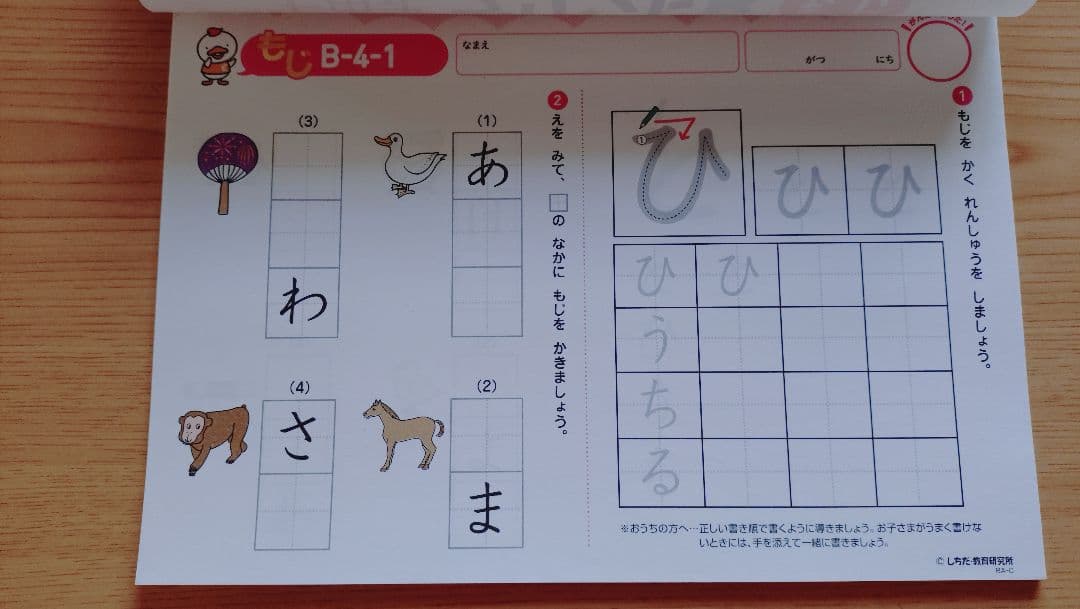 もじ B-4-1
なまえ
がつ にち
1 もじを かく れんしゅうを しましょう。
①
ひ
ひ ひ
ひ ひ
う
ち
る
※おうちの方へ…正しい書き順で書くように導きましょう。お子さまがうまく書けな
いときには、手を添えて一緒に書きましょう。
2 えを みて、□の なかに もじを かきましょう。
(1)
あ
(2)
ま
(3)
わ
(4)
さ
© しちだ・教育研究所
BA-C